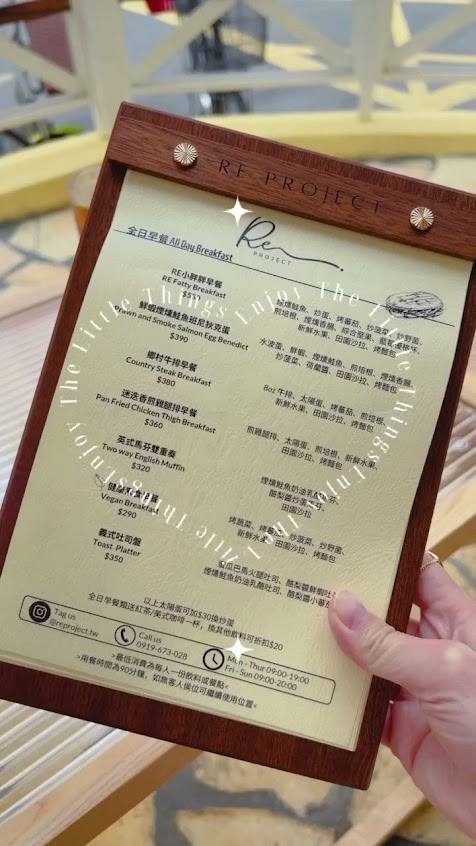 RE PROJECT
Re
PROJECT
全日早餐 All Day Breakfast
RE小胖胖早餐
RE Fatty Breakfast
煙燻鮭魚、炒蛋、烤蕃茄、炒菠菜、炒野菇、
鮮蝦煙燻鮭魚班尼狄克蛋
Prawn and Smoke Salmon Egg Benedict
$390
水波蛋、鮮蝦、煙燻鮭魚、煎培根、煙燻香腸、
炒菠菜、荷蘭醬、田園沙拉、烤麵包
鄉村牛排早餐
Country Steak Breakfast
$380
8oz 牛排、太陽蛋、烤蕃茄、煎培根、
新鮮水果、田園沙拉、烤麵包
迷迭香煎雞腿排早餐
Pan Fried Chicken Thigh Breakfast
$360
煎雞腿排、太陽蛋、煎培根、新鮮水果、
田園沙拉、烤麵包
英式馬芬雙重奏
Two way English Muffin
$320
煙燻鮭魚奶油乳酪馬芬、
酪梨醬炒蛋馬芬、
田園沙拉
Vegan Breakfast
$290
烤蔬菜、烤蕃茄、炒菠菜、炒野菇、
新鮮水果、田園沙拉、烤麵包
義式吐司盤
Toast Platter
$350
蜜瓜巴馬火腿吐司、酪梨醬鮮蝦吐
煙燻鮭魚奶油乳酪吐司、酪梨醬小蕃茄
以上太陽蛋可加$30換炒蛋
全日早餐類送紅茶/美式咖啡一杯，換其他飲料可折扣$20
Tag us
@reproject.tw
Call us
0919-673-028
Mon - Thur 09:00-19:00
Fri - Sun 09:00-20:00
>最低消費為每人一份飲料或餐點<
>用餐時間為90分鐘，如無客人候位可繼續使用位置<
Enjoy The Little Things Enjoy The Little Things Enjoy The Little Things